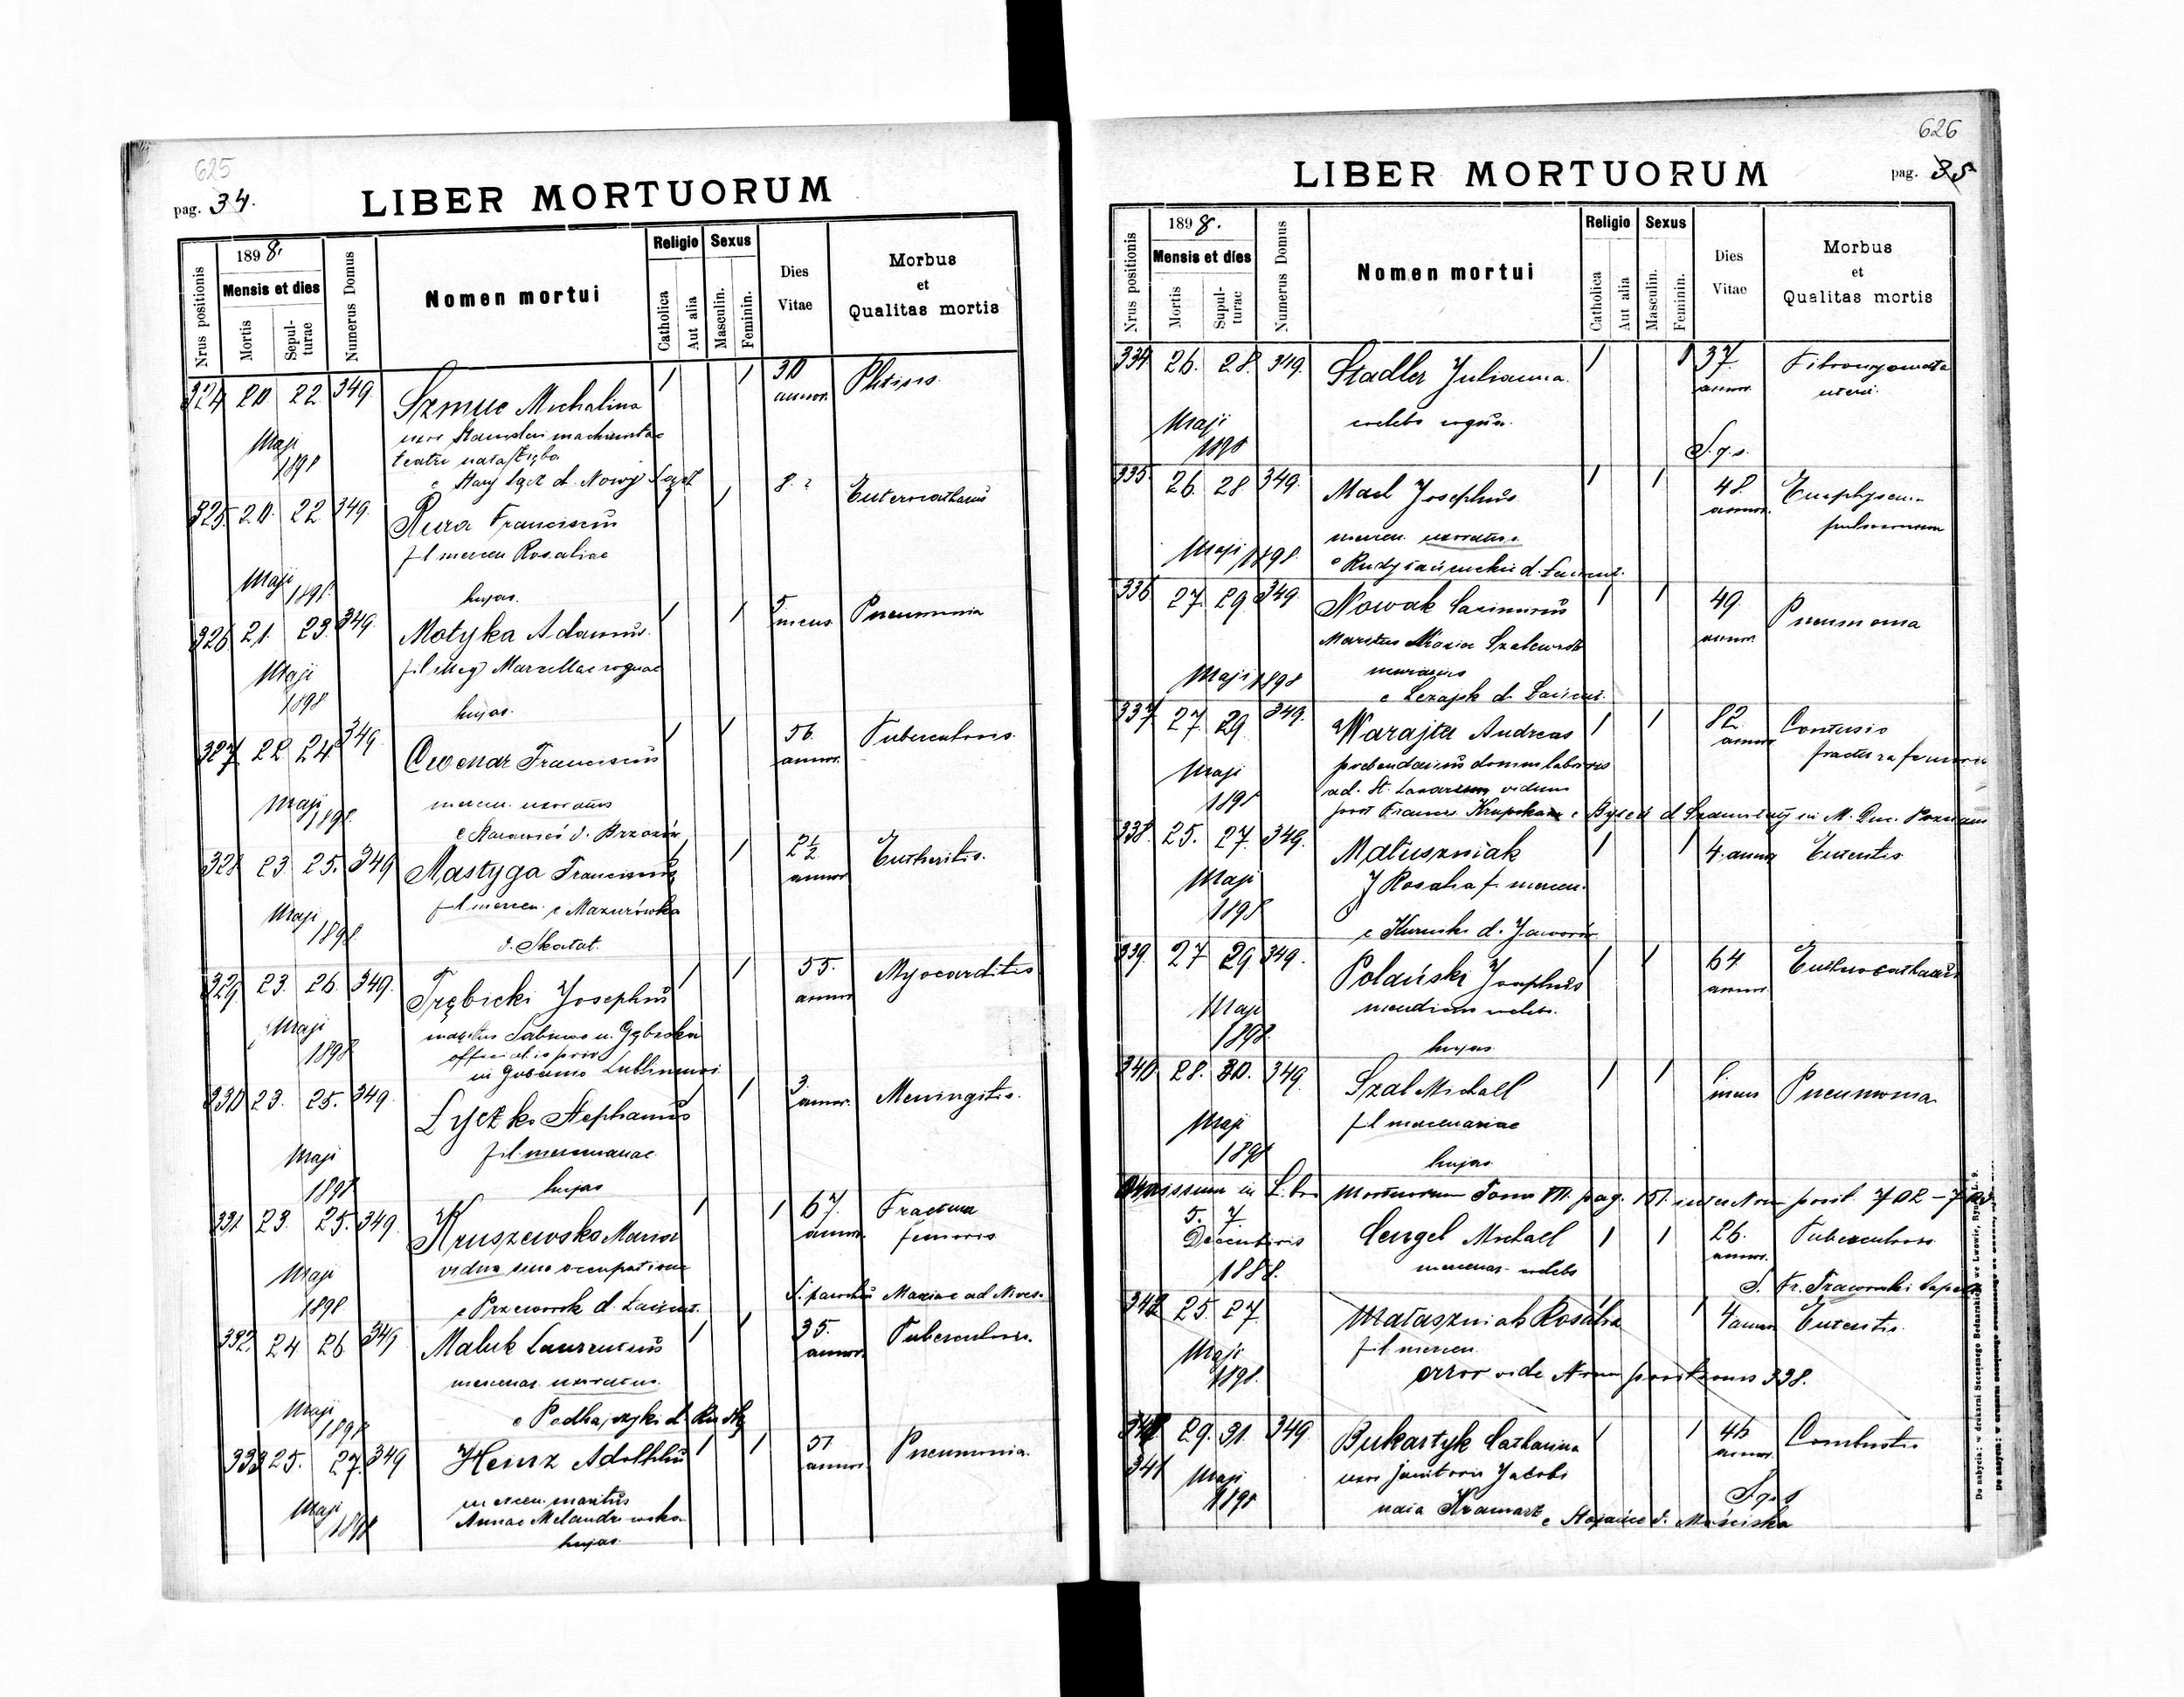 625
pag. 34.
LIBER MORTUORUM
Nrus positionis
1898.
Mensis et dies
Mortis
Sepulturae
Numerus Domus
Nomen mortui
Religio
Catholica
Aut alia
Sexus
Masculin.
Feminin.
Dies Vitae
Morbus et Qualitas mortis
324 20 22 349. Szmuc Michalina 1 1 30 annor. Phtisis.
uxor Stanislai machinistae
teatri nata
e Stary Sącz d. Nowy Sącz
Maji 1898
325. 20. 22 349. Rura Franciscus 1 1 8. Enterocatharus
fil mercen Rosaliae
Maji 1898. hujas.
326 21. 23. 349. Motyka Adamus. 1 1 5 mens Pneumonia
fil illeg Marcellae coquae
Maji 1898 hujas.
327 22 24 349. Cwenar Franciscus 1 1 56 annor. Tuberculosis.
mercen. uxoratus
Maji 1898. e d. Brzozów
328 23. 25. 349 Mastyga Franciscus 1 1 2½ annor Entheritis.
fil mercen. e Mazurówka
Maji 1898. d. Skałat.
329 23. 26. 349. Trębicki Josephus 1 1 55. annor Myocarditis
maritus Sabinae n. Gębicka
officialis priv
in Gubernio
Maji 1898
330 23. 25. 349. Łyczko Stephanus 1 3. annor. Meningitis.
fil. mercenariae
Maji 1898 hujas
331 23. 25. 349. Kruszewska Maria 1 1 67. annor. Fractura femoris
vidua sine occupatione
Maji 1898 e Przeworsk d. Łańcut. S. parochii Mariae ad Nives.
332. 24 26 349 Maluk Laurentius 1 1 35. annor. Tuberculosis.
mercenar. uxoratus.
Maji 1898 e Podhajczyki d. Rudky
333 25. 27. 349 Heinz Adolphus 1 1 51 annor. Pneumonia.
mercen. maritus
Annae
Maji 1898 hujas.
626
LIBER MORTUORUM
pag. 35
Nrus positionis
1898.
Mensis et dies
Mortis
Sepulturae
Numerus Domus
Nomen mortui
Religio
Catholica
Aut alia
Sexus
Masculin.
Feminin.
Dies Vitae
Morbus et Qualitas mortis
334 26. 28. 349. Stadler Julianna. 1 1 37. annor. Fibromyomata uteri.
Maji 1898 coelebs coqua.
335. 26. 28 349. Mach Josephus 1 1 48. annor. Emphysem pulmonum
mercen. uxoratus.
Maji 1898. d. Łańcut.
336 27. 29. 349. Nowak Casimirus 1 1 49. annor. Pneumonia
Maritus Maria
mercenarius
Maji 1898 e Leżajsk d. Łańcut.
337 27. 29 349. Warajta Andreas 1 1 82. annor Contusio
prebendarius domus laboris fractura femoris
ad. St. Lazarum viduus
Maji 1898 post Francis.
338. 25. 27. 349. Matuszniak 1 1 4. annor Enteritis
Rosalia f. mercen.
Maji 1898 d. Jaworów
339. 27 29 349. Polański Josephus 1 1 64 annor. Entherocatharus
mendicus coelebs.
Maji 1898. hujas
340 28. 30. 349. Szal Michael 1 1 mens Pneumonia
fil mercenariae
Maji 1898 hujas.
Omissum in Libro Mortuorum Tomo VII. pag. 151. inter Num posit. 702 –
5. 7 Decembris 1888. Cengel Michael 1 1 26. annor. Tuberculosis
mercenar. coelebs
342 25. 27. Matuszniak Rosalia 1 4 annor Enteritis.
fil mercen
Maji 1898. error vide Num positionis 338.
341 29. 31. 349. Bukartyk Catharina 1 1 annor. Combustio
uxor janitoris Jacobi
Maji 1898 nata Kramarz d. Mościska